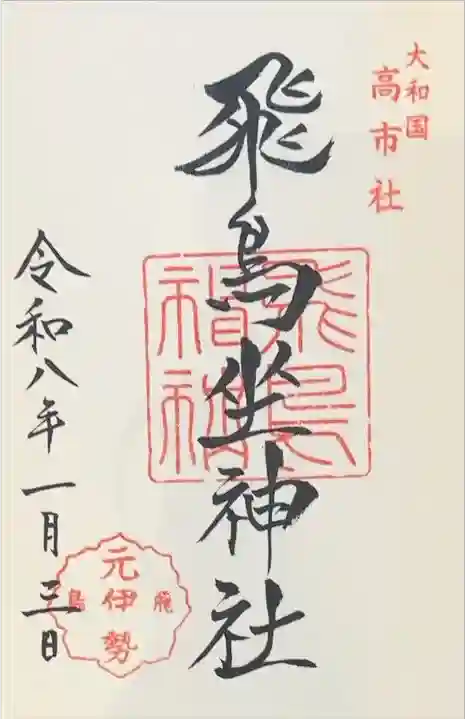 大和国
高市社
飛鳥坐神社
令和八年一月三日
元伊勢
飛鳥